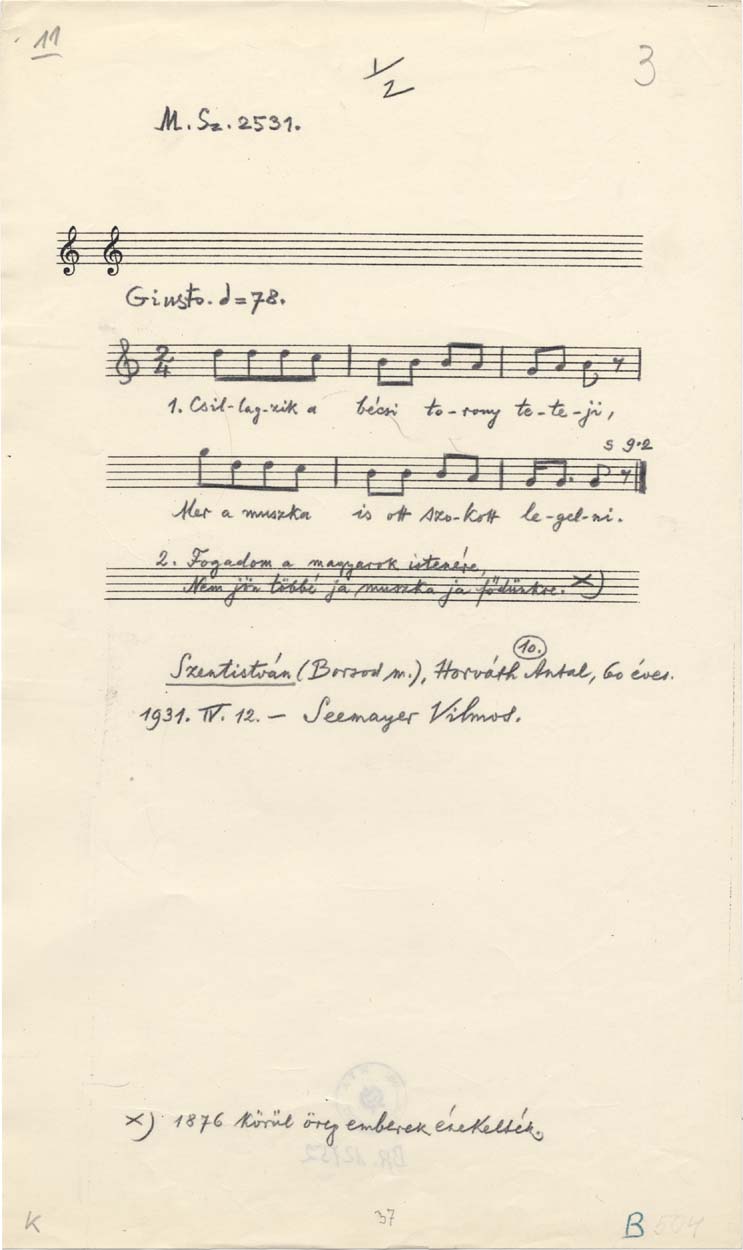 11
1/2
3
M. Sz. 2531.
Giusto. d=78.
2/4
1. Csil-lag-zik a bécsi to-rony te-te-ji,
s 9·2
Mer a muszka is ott szo-kott le-gel-ni.
2. Fogadom a magyarok istenére,
Nem jön többé ja muszka ja födünkre. x)
10.
Szentistván (Borsod m.), Horváth Antal, 60 éves.
1931. IV. 12. – Seemayer Vilmos.
x) 1876 körül öreg emberek énekelték.
BR. 12152
K
37
B 504